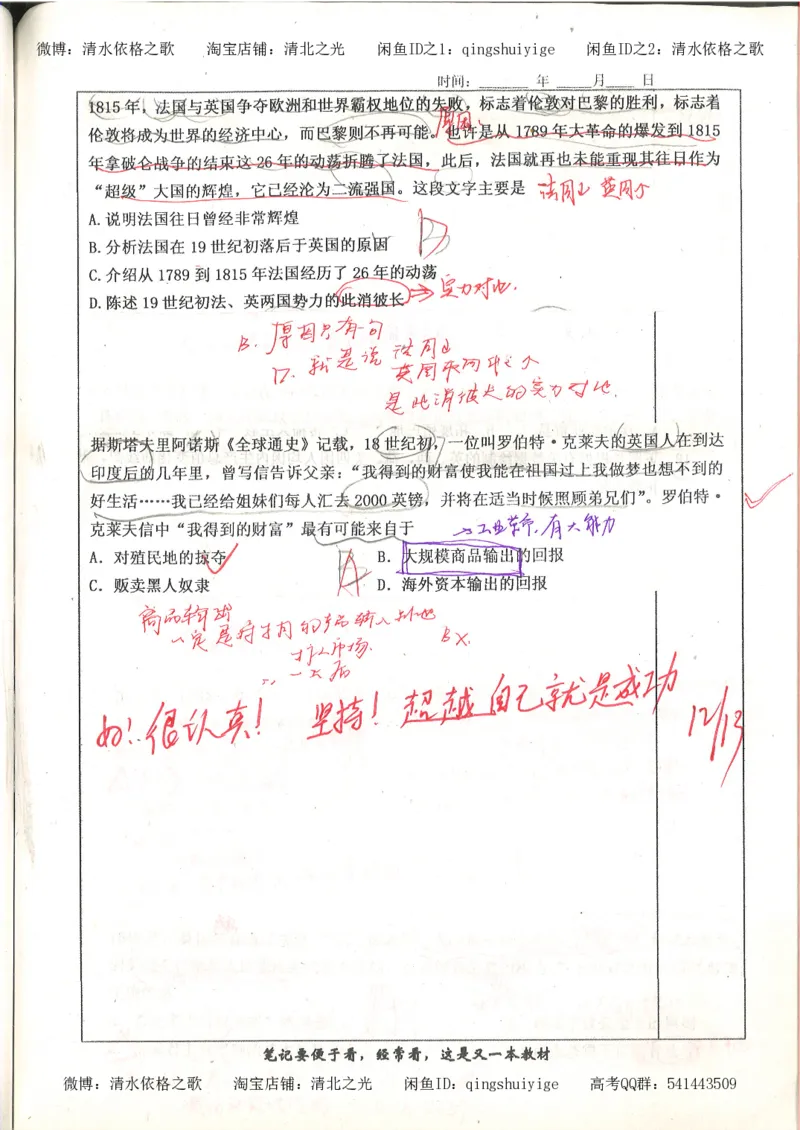 微博：清水依格之歌 淘宝店铺：清北之光 闲鱼ID之1：qingshuiyige 闲鱼ID之2：清水依格之歌
时间：______ 年 _____月____ 日
1815 年，法国与英国争夺欧洲和世界霸权地位的失败，标志着伦敦对巴黎的胜利，标志着
原因：
伦敦将成为世界的经济中心，而巴黎则不再可能。也许是从 1789 年大革命的爆发到 1815
年拿破仑战争的结束这 26 年的动荡折腾了法国，此后，法国就再也未能重现其往日作为
“超级”大国的辉煌，它已经沦为二流强国。这段文字主要是 法国↓ 英国个
A. 说明法国往日曾经非常辉煌
B. 分析法国在 19 世纪初落后于英国的原因 B
C. 介绍从 1789 到 1815 年法国经历了 26 年的动荡
D. 陈述 19 世纪初法、英两国势力的此消彼长 ⇒ 实力对比.
B. 原因只有一句
D. 就是说 法国↓
英国
是此消彼长的实力对比.
据斯塔夫里阿诺斯《全球通史》记载，18 世纪初，一位叫罗伯特·克莱夫的英国人在到达
印度后的几年里，曾写信告诉父亲：“我得到的财富使我能在祖国过上我做梦也想不到的
好生活……我已经给姐妹们每人汇去 2000 英镑，并将在适当时候照顾弟兄们”。罗伯特·
克莱夫信中“我得到的财富”最有可能来自于 →工业革命.有大能力
A．对殖民地的掠夺 A B．大规模商品输出的回报
C．贩卖黑人奴隶 D．海外资本输出的回报
商品输出
一定是将本国的产品输入别地 B×.
市场.
好！很认真！ 坚持！超越自己就是成功
12/13
笔记要便于看，经常看，这是又一本教材
微博：清水依格之歌 淘宝店铺：清北之光 闲鱼ID：qingshuiyige 高考QQ群：541443509